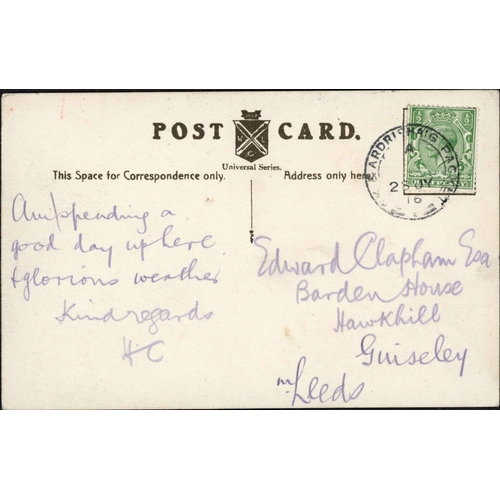 POST CARD.
Universal Series.
This Space for Correspondence only.
Address only here
ARDRISHAIG PACKET
A
16
Am spending a
good day up here
& glorious weather
Kind regards
HC
Edward Clapham Esq
Barden House
Hawkhill
Guiseley
nr Leeds